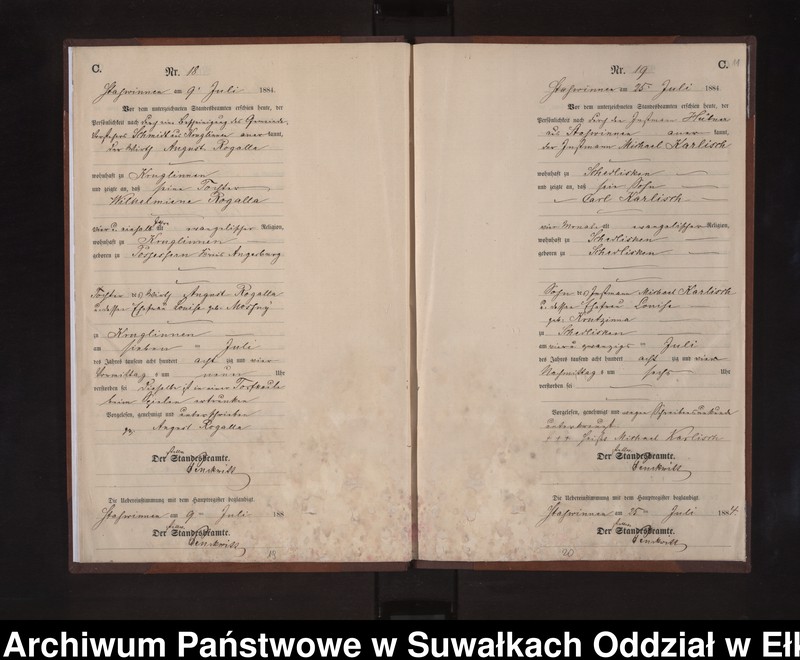 C.
Nr. 18
Stasswinnen am 9n Juli 1884
Vor dem unterzeichneten Standesbeamten erschien heute, der
Persönlichkeit nach durch eine Bescheinigung des Gemeinde
Vorstehers Schmidt aus Knglinnen anerkannt,
der Wirth August Rogalla
wohnhaft zu Knglinnen
und zeigte an, daß seine Tochter
Wilhelmiene Rogalla
vier u. einhalb Jahr evangelischer Religion,
wohnhaft zu Knglinnen
geboren zu Possessern Kreis Angerburg
Tochter des Wirth August Rogalla
u. dessen Ehefrau Louise geb.
zu Knglinnen
am sieben ten Juli
des Jahres tausend acht hundert achtzig und vier
Vormittag s um neun Uhr
verstorben sei dieselbe ist in einer Torfkuhle
beim Spielen ertrunken
Vorgelesen, genehmigt und unterschrieben
gz. August Rogalla
Der Standesbeamte.
Die Uebereinstimmung mit dem Hauptregister beglaubigt
Stasswinnen am 9 ten Juli 188
Der Standesbeamte.
19
C.
Nr. 19
Stasswinnen am 25n Juli 1884
Vor dem unterzeichneten Standesbeamten erschien heute, der
Persönlichkeit nach durch den Instmann Hübner
aus Stasswinnen anerkannt,
der Instmann Michael Karlisch
wohnhaft zu Schedlisken
und zeigte an, daß sein Sohn
Carl Karlisch
vier Monate alt evangelischer Religion,
wohnhaft zu Schedlisken
geboren zu Schedlisken
Sohn des Instmann Michael Karlisch
u. dessen Ehefrau Louise
geb.
zu Schedlisken
am vier u. zwanzigsten Juli
des Jahres tausend acht hundert achtzig und vier
Nachmittag s um sechs Uhr
verstorben sei
Vorgelesen, genehmigt und wegen Schreibensunkunde
unterkreuzt
+++ Michael Karlisch
Der Standesbeamte.
Die Uebereinstimmung mit dem Hauptregister beglaubigt
Stasswinnen am 25 ten Juli 1884.
Der Standesbeamte.
20
Archiwum Państwowe w Suwałkach Oddział w Ełk